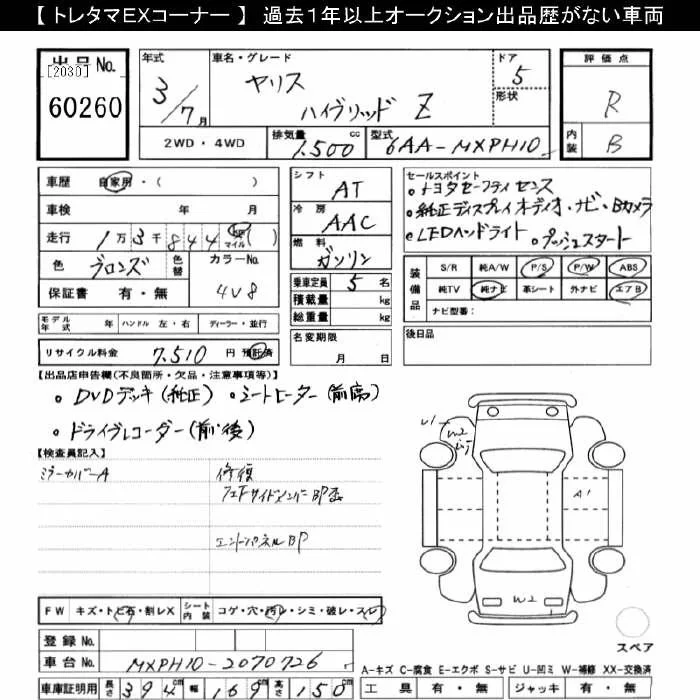 【トレタマEXコーナー】 過去1年以上オークション出品歴がない車両
出品No. [2030] 60260
年式 3/7月
車名・グレード ヤリス ハイブリッド Z
ドア 5
形状
評価点 R
内装 B
2WD・4WD
排気量 1,500 cc
型式 6AA-MXPH10
車歴 自家用・( )
車検 年 月
走行 1万3千844 km マイル ( )
色 ブロンズ 色替 カラーNo. 4V8
保証書 有・無
シフト AT
冷房 AAC
燃料 ガソリン
乗車定員 5 名
積載量 kg
総重量 kg
名変期限 月 日
セールスポイント
・トヨタセーフティセンス
・純正ディスプレイオーディオ・ナビ・Bカメラ
・LEDヘッドライト ・プッシュスタート
装備品 S/R 純A/W P/S P/W ABS
純TV 純ナビ 革シート 外ナビ エアB
ナビ型番:
後日品
モデル年式 年 ハンドル 左・右 ディーラー・並行
リサイクル料金 7,510 円 預託済
【出品店申告欄(不良箇所・欠品・注意事項等)】
・DVDデッキ(純正) ・シートヒーター(前席)
・ドライブレコーダー(前後)
【検査員記入】
ミラーカバーA
修復
エンドパネルBP
U1
W2
A1
W2
FW キズ・トビ石・割レX シート内装 コゲ・穴・汚レ・シミ・破レ・スレ
スペア
登録No.
車台No. MXPH10-2070726
A-キズ C-腐食 E-エクボ S-サビ U-凹ミ W-補修 XX-交換済
車庫証明用 長さ 394cm 幅 169cm 高さ 150cm
工具 有・無 ジャッキ 有・無